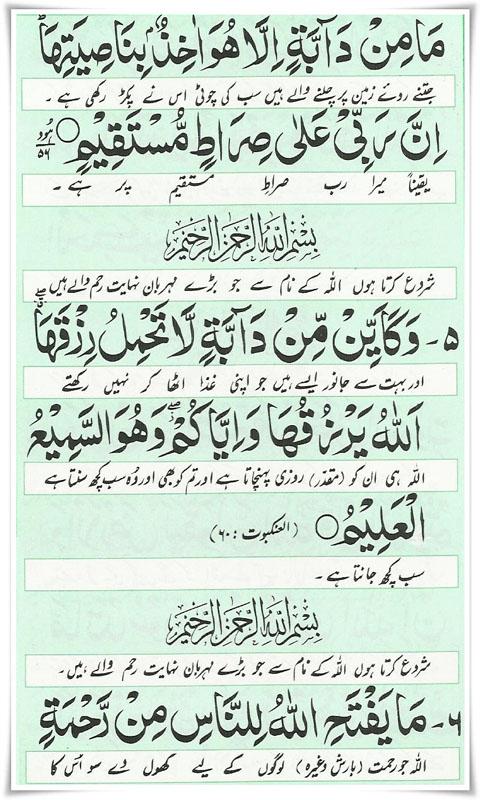 مَا مِنْ دَآبَّةٍ اِلَّا هُوَ اٰخِذٌۢ بِنَاصِيَتِهَا ؕ
جتنے روئے زمین پر چلنے والے ہیں سب کی چوٹی اس نے پکڑ رکھی ہے۔
اِنَّ رَبِّىْ عَلٰى صِرَاطٍ مُّسْتَقِيْمٍ ○ هُود ۵۶
یقیناً میرا رب صراطِ مستقیم پر ہے۔
بِسْمِ اللّٰهِ الرَّحْمٰنِ الرَّحِيْمِ
شروع کرتا ہوں اللہ کے نام سے جو بڑے مہربان نہایت رحم والے ہیں
۵۔ وَكَاَيِّنْ مِّنْ دَآبَّةٍ لَّا تَحْمِلُ رِزْقَهَا
اور بہت سے جانور ایسے ہیں جو اپنی غذا اٹھا کر نہیں رکھتے
اَللّٰهُ يَرْزُقُهَا وَاِيَّاكُمْ ۖ وَهُوَ السَّمِيْعُ
اللہ ہی ان کو (مقدّر) روزی پہنچاتا ہے اور تم کو بھی اور وہ سب کچھ سنتا ہے
الْعَلِيْمُ ○ (العنکبوت : ۶۰)
سب کچھ جانتا ہے۔
بِسْمِ اللّٰهِ الرَّحْمٰنِ الرَّحِيْمِ
شروع کرتا ہوں اللہ کے نام سے جو بڑے مہربان نہایت رحم والے ہیں۔
۶۔ مَا يَفْتَحِ اللّٰهُ لِلنَّاسِ مِنْ رَّحْمَةٍ
اللہ جو رحمت (بارش وغیرہ) لوگوں کے لیے کھول دے سو اس کا